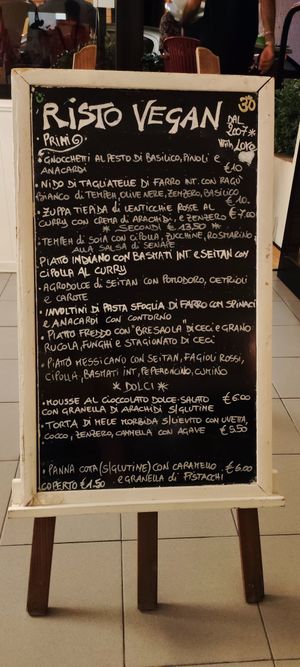 RISTO VEGAN DAL 2007*
With Love
PRIMI
• GNOCCHETTI AL PESTO DI BASILICO, PINOLI E
ANACARDI €10
• NIDO DI TAGLIATELLE DI FARRO INT. CON RAGÙ
BIANCO DI TEMPEH, OLIVE NERE, ZENZERO, BASILICO €10
• ZUPPA TIEPIDA DI LENTICCHIE ROSSE AL
CURRY CON CREMA DI ARACHIDI, E ZENZERO €7.00
* SECONDI € 13,50 *
• TEMPEH DI SOIA CON CIPOLLA, ZUCCHINE, ROSMARINO
ALLA SALSA DI SENAPE
PIATTO INDIANO CON BASMATI INT E SEITAN CON
CIPOLLA AL CURRY
• AGRODOLCE DI SEITAN CON POMODORO, CETRIOLI
E CAROTE
• INVOLTINI DI PASTA SFOGLIA DI FARRO CON SPINACI
E ANACARDI CON CONTORNO
• PIATTO FREDDO CON "BRESAOLA" DI CECI E GRANO
RUCOLA, FUNGHI E STAGIONATO DI CECI
• PIATTO MESSICANO CON SEITAN, FAGIOLI ROSSI,
CIPOLLA, BASMATI INT, PEPERONCINO, CUMINO
* DOLCI *
• MOUSSE AL CIOCCOLATO DOLCE-SALATO €6.00
CON GRANELLA DI ARACHIDI S/GLUTINE
• TORTA DI MELE MORBIDA S/LIEVITO CON UVETTA,
COCCO, ZENZERO, CANNELLA CON AGAVE €5.50
• PANNA COTA (S/GLUTINE) CON CARAMELLO €6.00
E GRANELLA DI PISTACCHI
COPERTO €1.50